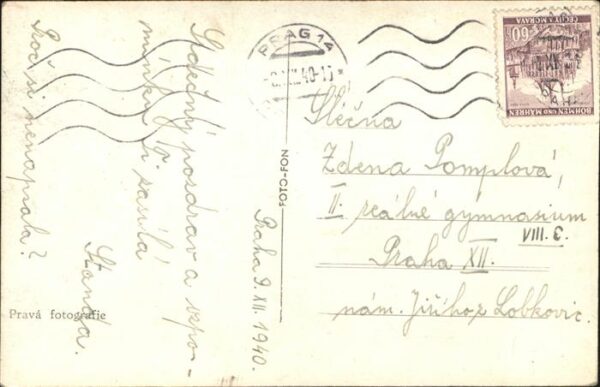 Srdečný pozdrav a vzpo-
mínku Ti zasílá
Standa.
Proč si nenapsala?
Praha 9. XII. 1940.
Pravá fotografie
FOTO-FON
PRAG 14
60
ČECHY A MORAVA
BÖHMEN UND MÄHREN
Slečna
Zdena Pomplová,
II. reálné gymnasium
VIII. C.
Praha XII.
nám. Jiřího z Lobkovic.